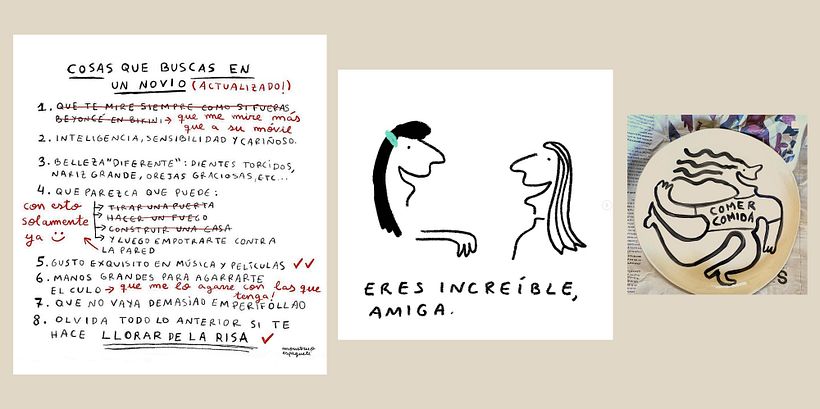 COSAS QUE BUSCAS EN
UN NOVIO (ACTUALIZADO!)
1. QUE TE MIRE SIEMPRE COMO SI FUERAS
BEYONCÉ EN BIKINI → que me mire más
que a su móvil
2. INTELIGENCIA, SENSIBILIDAD Y CARIÑOSO.
3. BELLEZA "DIFERENTE": DIENTES TORCIDOS,
NARIZ GRANDE, OREJAS GRACIOSAS, ETC...
4. QUE PAREZCA QUE PUEDE:
con esto
solamente
ya
TIRAR UNA PUERTA
HACER UN FUEGO
CONSTRUIR UNA CASA
Y LUEGO EMPOTRARTE CONTRA
LA PARED
5. GUSTO EXQUISITO EN MÚSICA Y PELÍCULAS
6. MANOS GRANDES PARA AGARRARTE
EL CULO → que me lo agarre con las que
tenga!
7. QUE NO VAYA DEMASIAO EMPERIFOLLAO
8. OLVIDA TODO LO ANTERIOR SI TE
HACE LLORAR DE LA RISA
monstruo
espagueti
ERES INCREÍBLE,
AMIGA.
COMER
COMIDA